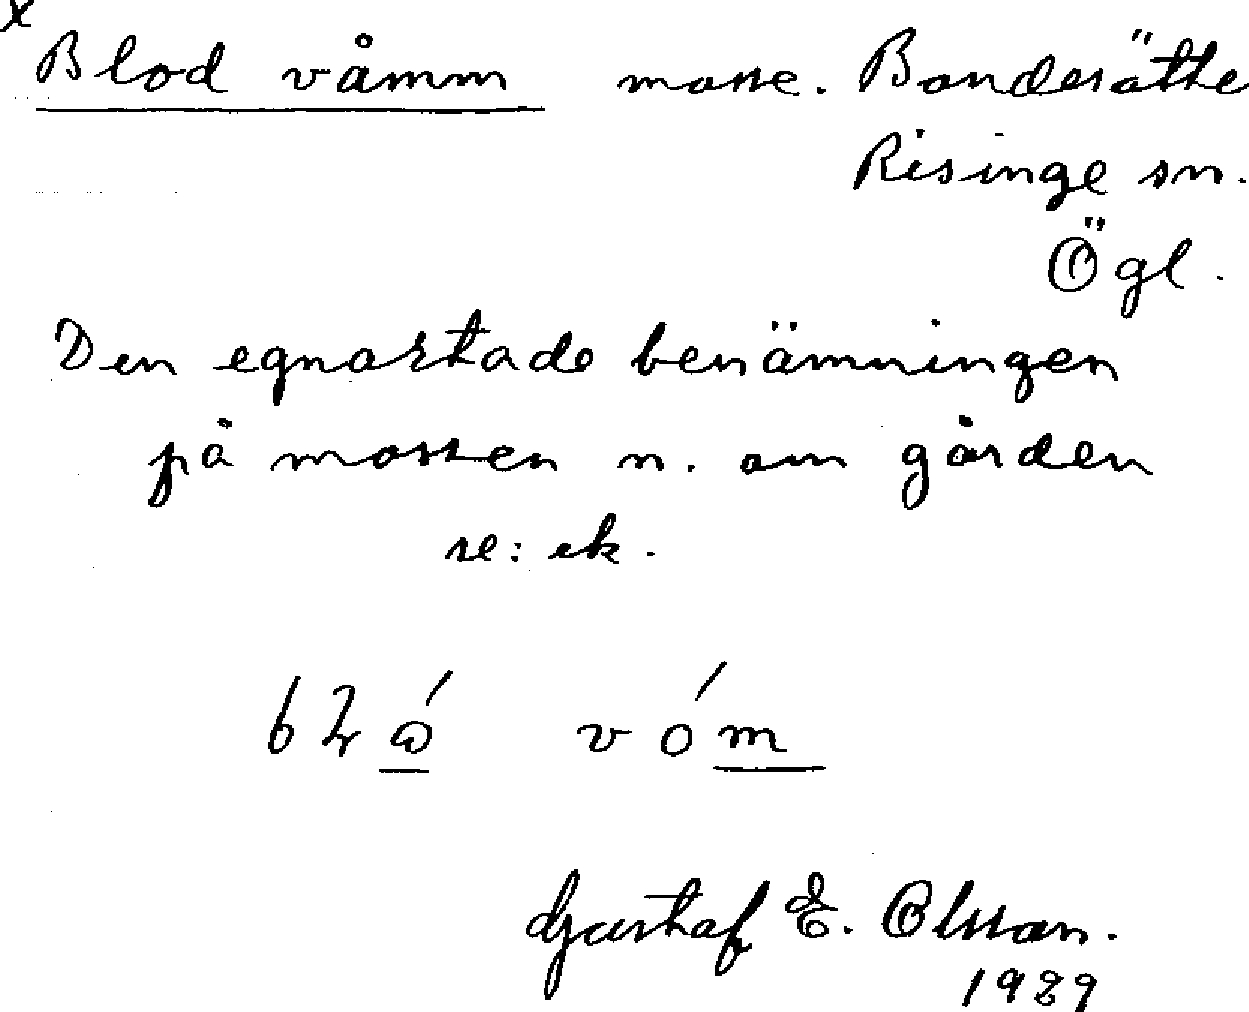 x
Blod våmm mosse. Bondesätte
Risinge sn.
Ögl.
Den egnartade benämningen
på mossen n. om gården
se: ek.
vóm
Gustaf E. Olsson.
1929